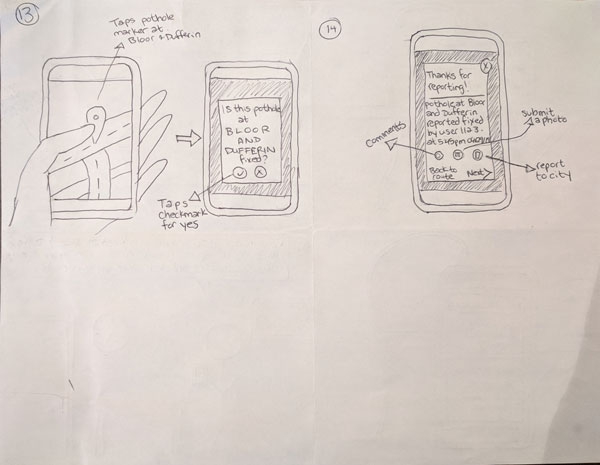 13
Taps pothole
marker at
Bloor & Dufferin
Is this pothole
at
BLOOR
AND
DUFFERIN
fixed?
Taps
checkmark
for yes
14
X
Thanks for
reporting!
pothole at Bloor
and Dufferin
reported fixed
by user 1123
at 5:45pm
Back to
route
Next
comments
submit
a photo
report
to city